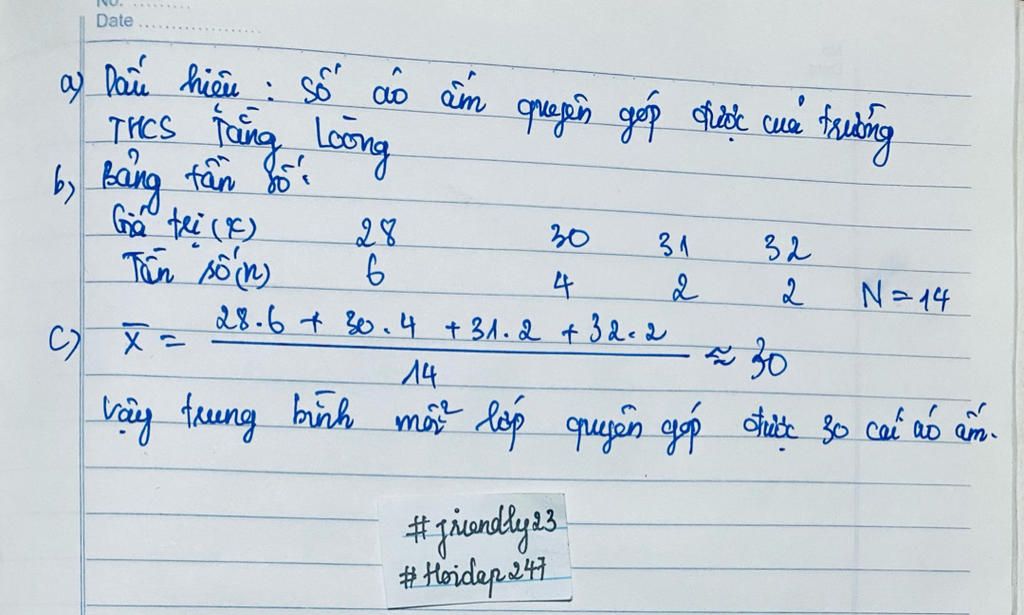 No. ..........
Date ..................
a) Dấu hiệu : Số áo ấm quyên góp được của trường
THCS Tằng Loỏng
b) Bảng tần số:
Giá trị (x) 28 30 31 32
Tần số (n) 6 4 2 2 N = 14
c) X̄ = (28.6 + 30.4 + 31.2 + 32.2) / 14 ≈ 30
Vậy trung bình mỗi lớp quyên góp được 30 cái áo ấm.
#friendly23
#Hoidap247